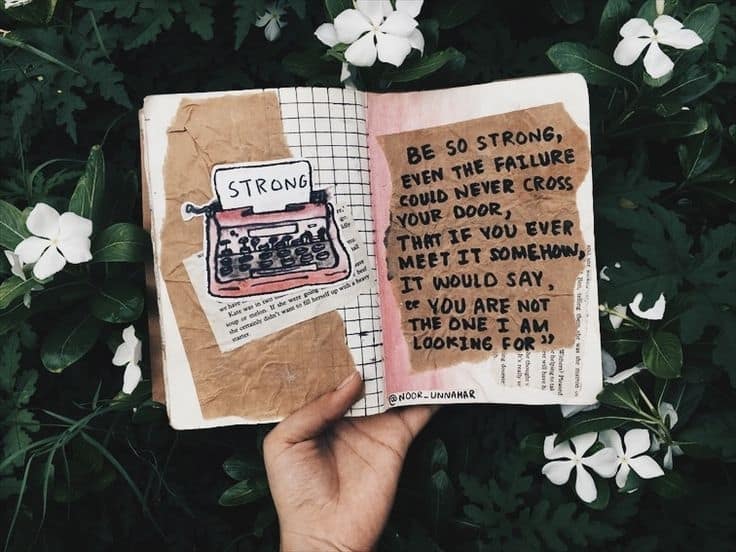 STRONG
we have rats in
Kate was in two
soup or melon. If she were going
she certainly didn't want to fill herself up with a heavy
starter.
BE SO STRONG,
EVEN THE FAILURE
COULD NEVER CROSS
YOUR DOOR,
THAT IF YOU EVER
MEET IT SOMEHOW,
IT WOULD SAY,
"YOU ARE NOT
THE ONE I AM
LOOKING FOR"
@NOOR_UNNAHAR